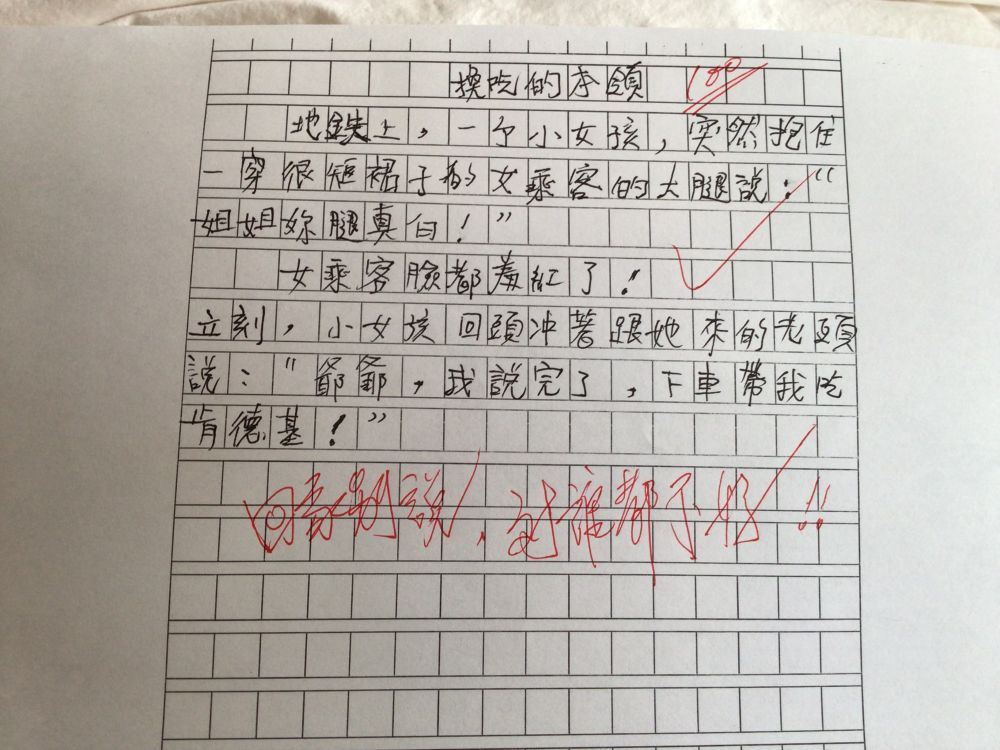 換吃的本領 100
地鐵上，一个小女孩，突然抱住
一穿很短裙子的女乘客的大腿說："
姐姐妳腿真白！"
女乘客臉都羞紅了！
立刻，小女孩回頭冲著跟她來的老頭
說："爺爺，我說完了，下車帶我吃
肯德基！"
回家別說，對誰都不好！！